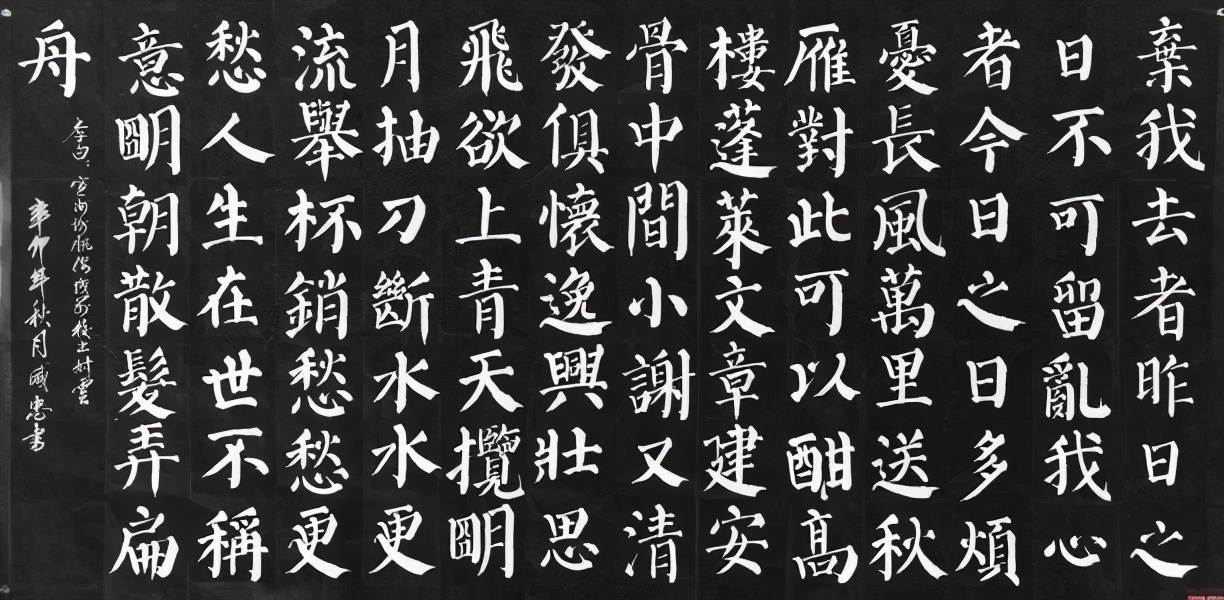 棄我去者昨日之
日不可留亂我心
者今日之日多煩
憂長風萬里送秋
雁對此可以酣髙
樓蓬萊文章建安
骨中間小謝又清
發俱懷逸興壯思
飛欲上青天攬朙
月抽刀斷水水更
流舉杯銷愁愁更
愁人生在世不稱
意朙朝散髮弄扁
舟
李白：宣洲谢朓楼饯别校书叔雲
辛卯年秋月忠书